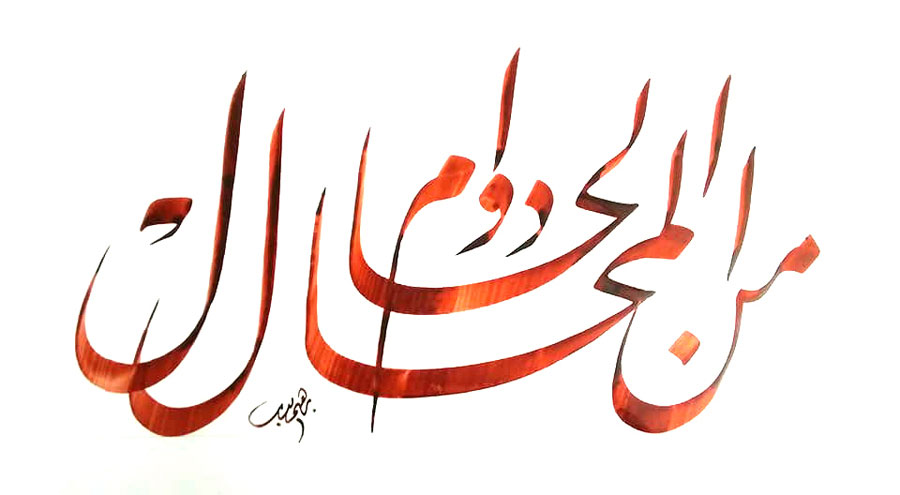 من المحال دوام الحال